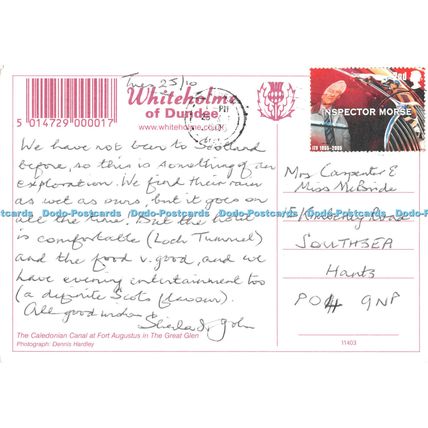 Tues 25/10
Whiteholme
of Dundee
www.whiteholme.co.uk
5 014729 000017
2nd
INSPECTOR MORSE
ITV 1955-2005
We have not been to Scotland
before, so this is something of an
exploration. We find their rain
as wet as ours, but it goes on
all the time. But the hotel
is comfortable (Loch Tummel)
and the food v. good, and we
have evening entertainment too
(a definite Scots flavour).
All good wishes
Sheila & John
The Caledonian Canal at Fort Augustus in The Great Glen
Photograph: Dennis Hardley
Mrs Carpenter &
Miss McBride
Road
SOUTHSEA
Hants
PO4 9NP
11403
Dodo-Postcards Dodo-Postcards Dodo-Postcards Dodo-Postcards